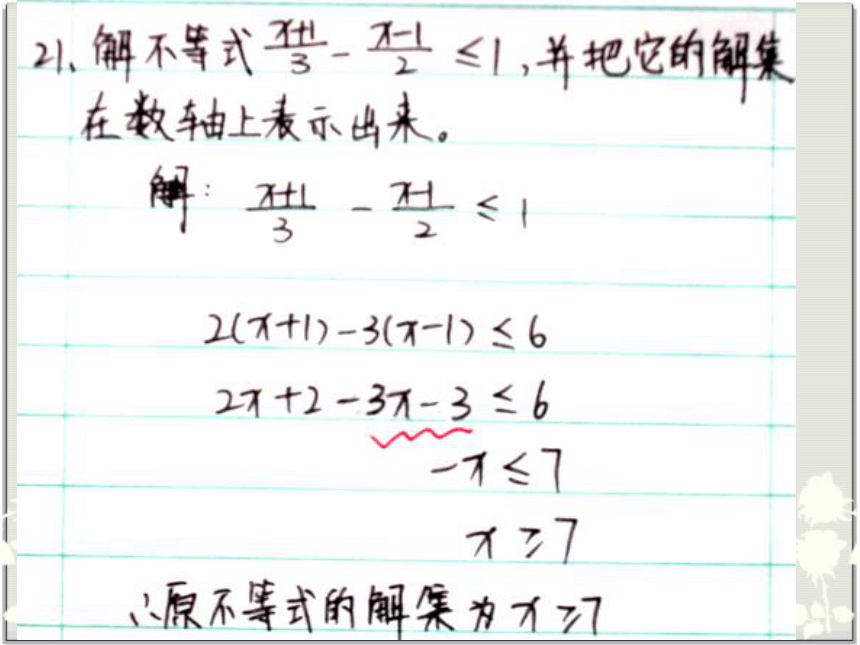 21、解不等式 (x+1)/3 - (x-1)/2 ≤1,并把它的解集
在数轴上表示出来。
解: (x+1)/3 - (x-1)/2 ≤ 1
2(x+1)-3(x-1) ≤ 6
2x+2-3x-3 ≤ 6
-x ≤ 7
x ≥ 7
∴原不等式的解集为 x ≥7